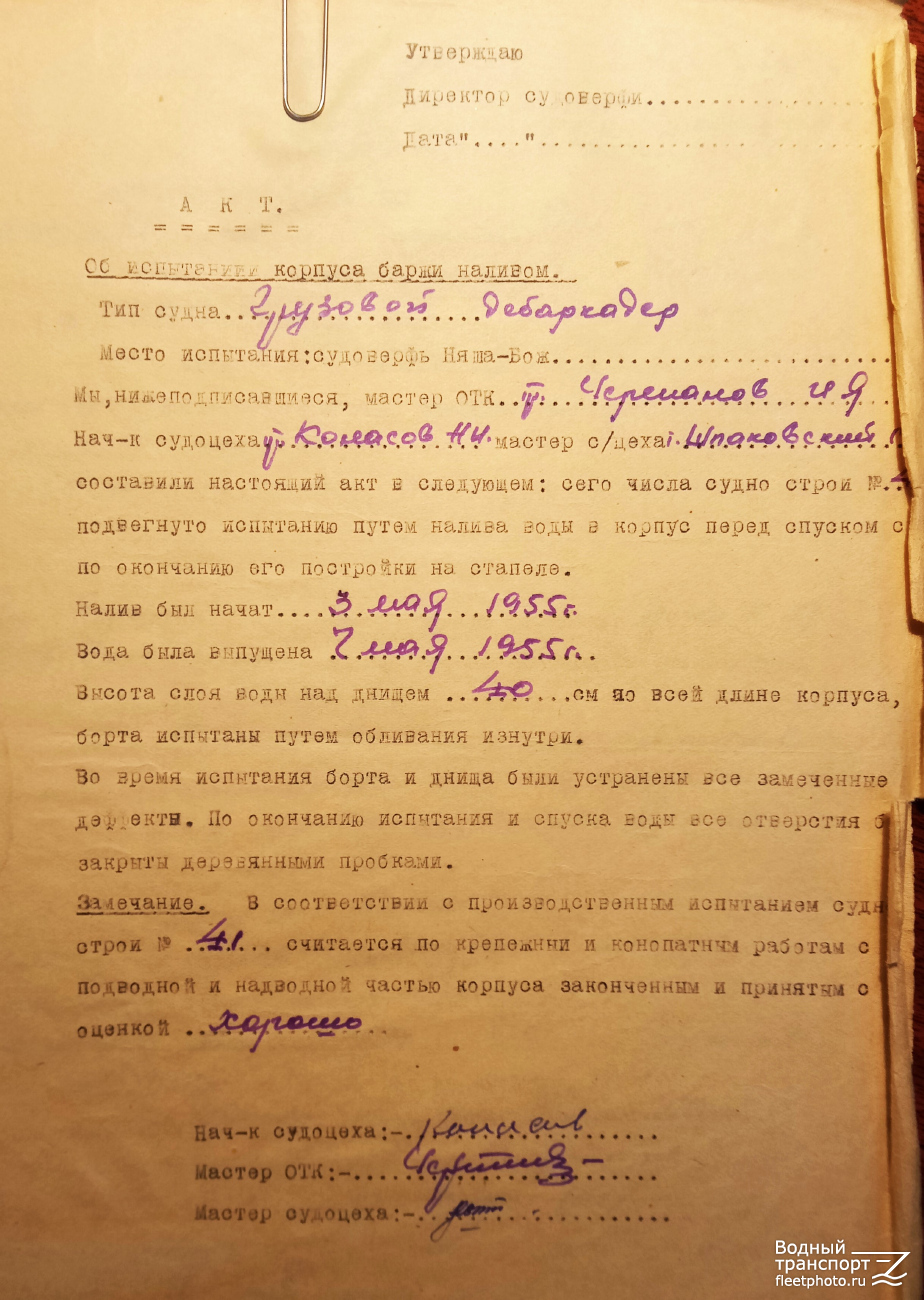 Утверждаю
Директор судоверфи....................
Дата"....".......................
А К Т.
= = = = = =
Об испытании корпуса баржи наливом.
Тип судна Грузовой дебаркадер
Место испытания:судоверфь Няша-Бож..........................
Мы,нижеподписавшиеся, мастер ОТК т. Черепанов И Я
Нач-к судоцеха т. Канасов НИ. мастер с/цеха т. Шпаковский
составили настоящий акт в следующем: сего числа судно строи №.
подвегнуто испытанию путем налива воды в корпус перед спуском с
по окончанию его постройки на стапеле.
Налив был начат.... 3 мая 1955г.
Вода была выпущена 7 мая 1955г.
Высота слоя воды над днищем ..40...см по всей длине корпуса,
борта испытаны путем обливания изнутри.
Во время испытания борта и днища были устранены все замеченные
деффекты. По окончанию испытания и спуска воды все отверстия б
закрыты деревянными пробками.
Замечание. В соответствии с производственным испытанием судн
строи № ..41... считается по крепежныи и конопатным работам с
подводной и надводной частью корпуса законченным и принятым с
оценкой ..харошо
Нач-к судоцеха:-
Мастер ОТК:-
Мастер судоцеха:-
Водный
транспорт
fleetphoto.ru